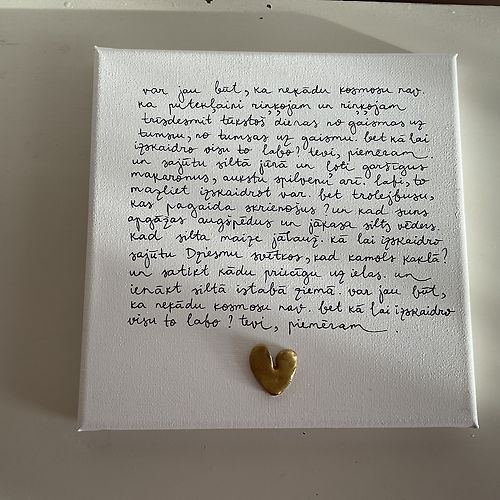 var jau būt, ka nekādu kosmosu nav.
ka putekļaini riņķojam un riņķojam
trīsdesmit tūkstoš dienas no gaismas uz
tumsu, no tumsas uz gaismu. bet kā lai
izskaidro visu to labo? tevi, piemēram.
un sajūtu siltā jūrā un ļoti garšīgus
makaronus, aukstu spilvenu arī. labi, to
mazliet izskaidrot var. bet trolejbusu,
kas pagaida skrienošus? un kad suns
apgāžas augšpēdus un jākasa silts vēders.
kad silta maize jālauž. kā lai izskaidro
sajūtu Dziesmu svētkos, kad kamols kaklā?
un satikt kādu priecīgu uz ielas. un
ienākt siltā istabā ziemā. var jau būt,
ka nekādu kosmosu nav. bet kā lai izskaidro
visu to labo? tevi, piemēram.